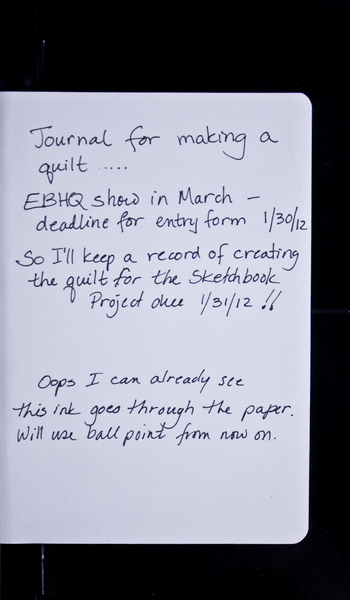 Journal for making a
quilt .....
EBHQ show in March –
deadline for entry form 1/30/12
So I'll keep a record of creating
the quilt for the Sketchbook
Project due 1/31/12 !!
Oops I can already see
this ink goes through the paper.
Will use ball point from now on.